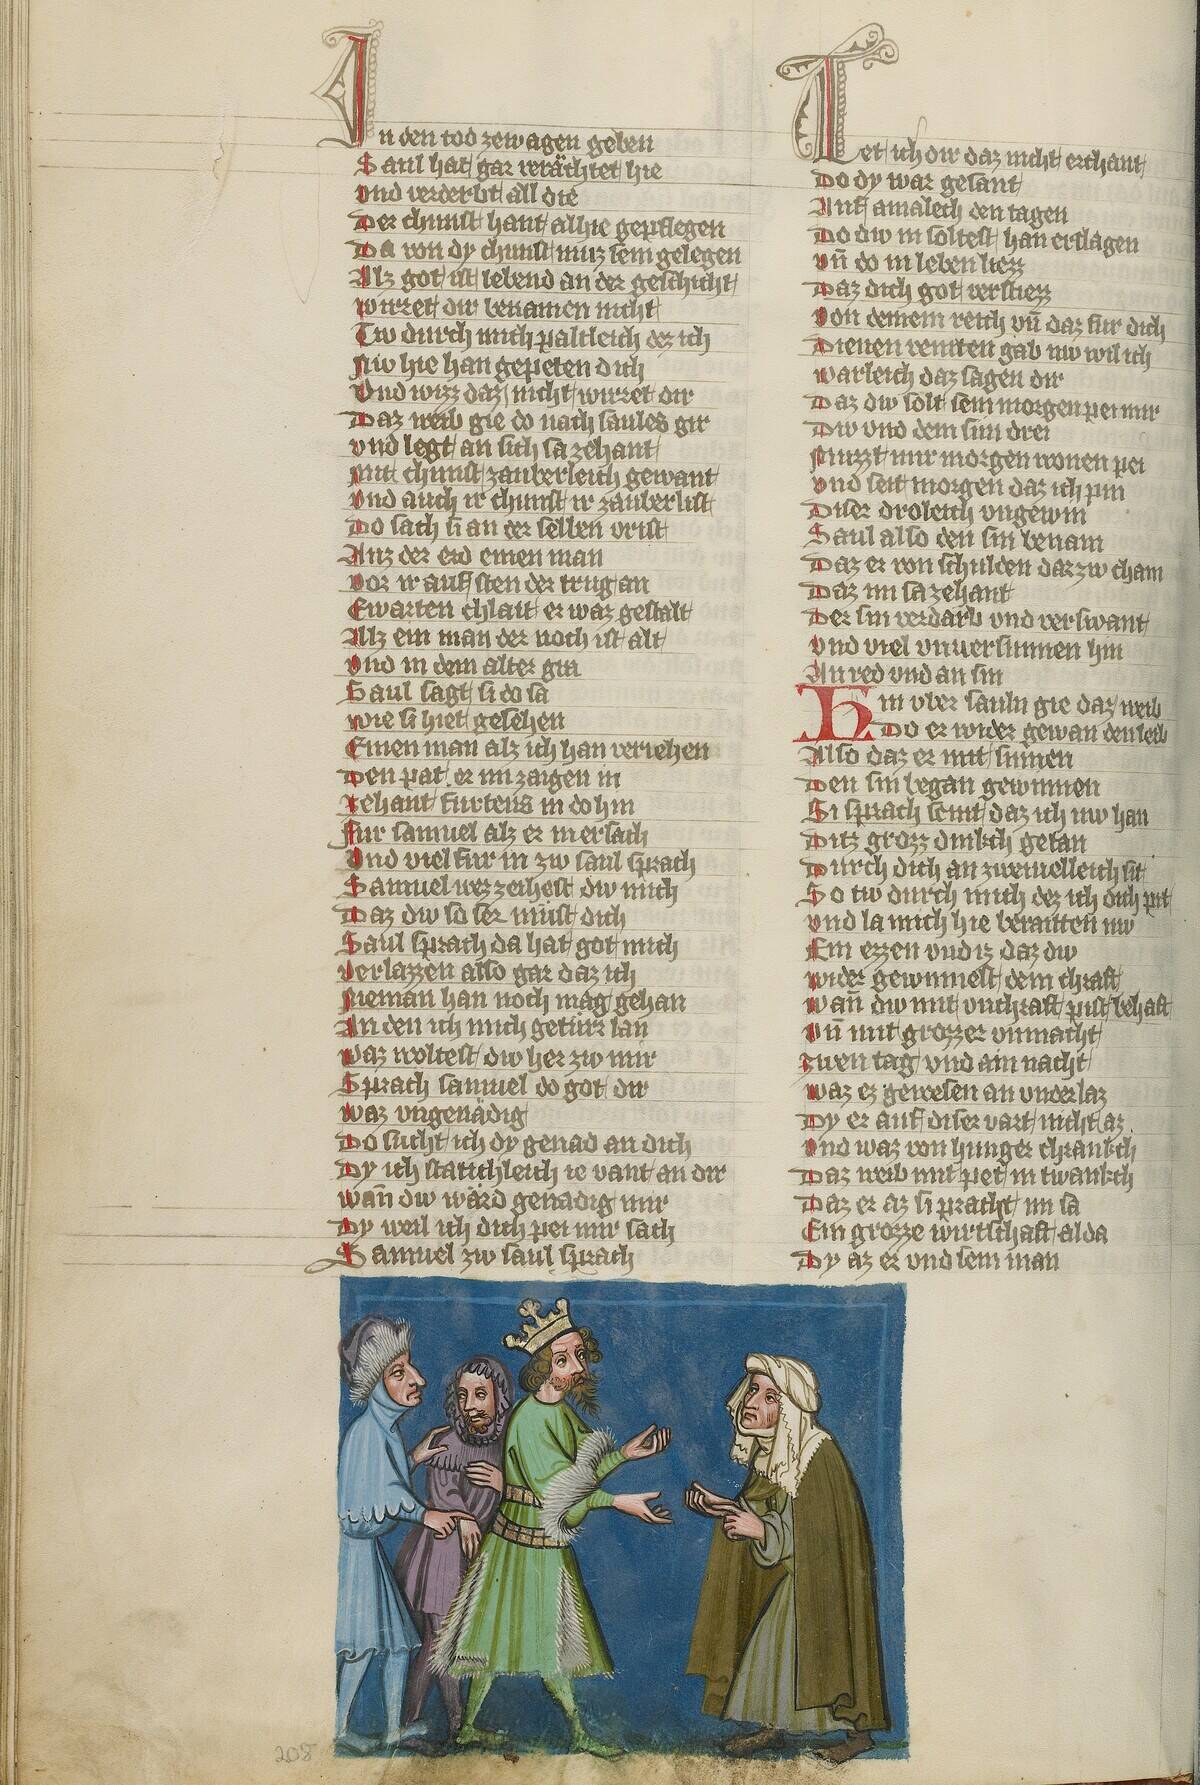 In den tod zewagen geben
Saul hat gar verächtet hie
vnd verderbt all die
Der chunst hant alhie gepflegen
Da von dy chunst muz sein gelegen
Alz got ist lebend an der geschicht
wirret dir benamen nicht
Tw durch mich paltleich dez ich
Nw hie han gepeten dich
Vnd wizz daz nicht wirret dir
Daz weib gie do nach saules gir
vnd legt an sich sa zehant
Mit chunst zauberleich gewant
vnd auch ir chunst ir zauberlist
Do sach si an der selben vrist
Auz der erd einen man
vor ir auf sten der trug an
Ewarten chlait er waz gestalt
Alz ein man der noch ist alt
vnd in dem alter gra
Saul sagt si do sa
wie si hiet gesehen
Einen man alz ich han veriehen
Den pat er im zaigen in
zehant furtens in do hin
Fur samuel alz er in ersach
Vnd viel fur in zw saul sprach
Samuel wez zeihest dw mich
Daz dw so ser müst dich
Saul sprach da hat got mich
verlazzen also gar daz ich
Nieman han noch mag gehan
An den ich mich getürr lan
waz woltest dw her zw mir
Sprach samuel do got dir
waz vngenädig
Do sucht ich dy genad an dich
Dy ich stätichleich ie vant an dir
wañ dw wärd genadig mir
Dy weil ich dich pei mir sach
Samuel zw saul sprach
Tet ich dir daz nicht erchant
Do dy war gesant
Auf amalech den tagen
Do dw in soltest han erslagen
vñ do in leben liezz
Daz dich got verstiezz
von deinem reich vñ daz fur dich
Dienen veinten gab nw wil ich
warleich daz sagen dir
Daz dw solt sein morgen pei mir
Dw vnd dein sun drei
Muzzt mir morgen wonen pei
vnd seit morgen daz ich pin
Diser droleich vngewin
Saul also den sin benam
Daz er von schulden dar zw cham
Daz im sa zehant
Der sin verdarb vnd verswant
vnd viel vnuersunnen hin
An red vnd an sin
Hin vber sauln gie daz weib
Do er wider gewan den leib
Also daz er mit sinnen
Den sin began gewinnen
Si sprach seint daz ich nw han
Ditz grozz dinkch getan
Durch dich an zweiuelleich sit
So tw durch mich dez ich dich pit
vnd la mich hie beraitten nw
Ein ezzen vnd iz daz dw
wider gewinnest dein chraft
wañ dw mit vnchraft pist behaft
vñ mit grozzer vnmacht
zwen tag vnd ain nacht
waz ez gewesen an vnderlaz
Dy er auf diser vart nicht az
vnd waz von hunger chrankch
Daz weib mit pet in twankch
Daz er az si pracht im sa
Ein grozze wirtschaft alda
Dy az er vnd sein man
208